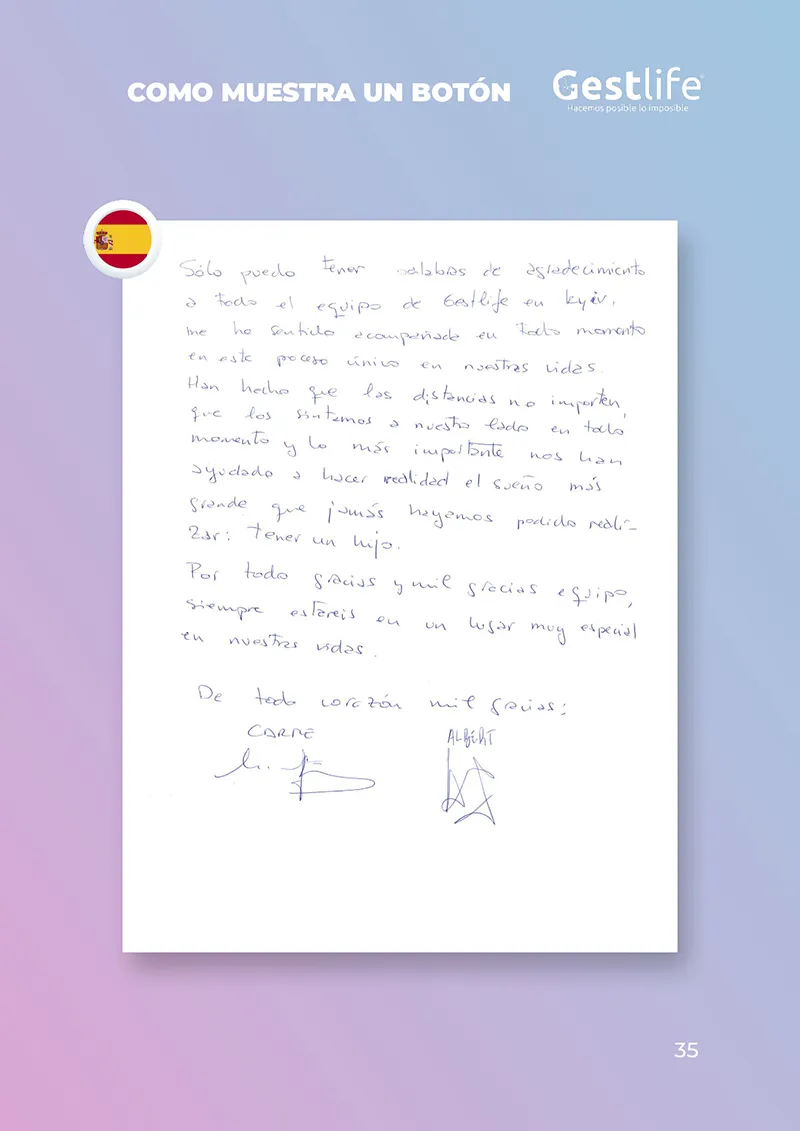 COMO MUESTRA UN BOTÓN
Gestlife
Hacemos posible lo imposible
Sólo puedo tener palabras de agradecimiento
a todo el equipo de Gestlife en Kyiv,
me he sentido acompañada en todo momento
en este proceso único en nuestras vidas.
Han hecho que las distancias no importen,
que los sintamos a nuestro lado en todo
momento y lo más importante nos han
ayudado a hacer realidad el sueño más
grande que jamás hayamos podido reali-
zar: tener un hijo.
Por todo gracias y mil gracias equipo,
siempre estareis en un lugar muy especial
en nuestras vidas.
De todo corazón mil gracias:
CARME
ALBERT
35